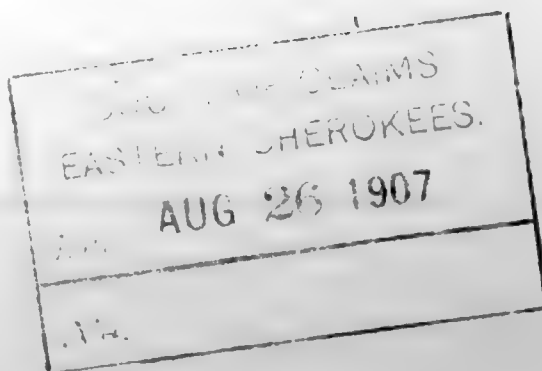 CLAIMS
EASTERN CHEROKEES.
AUG 26 1907
No.